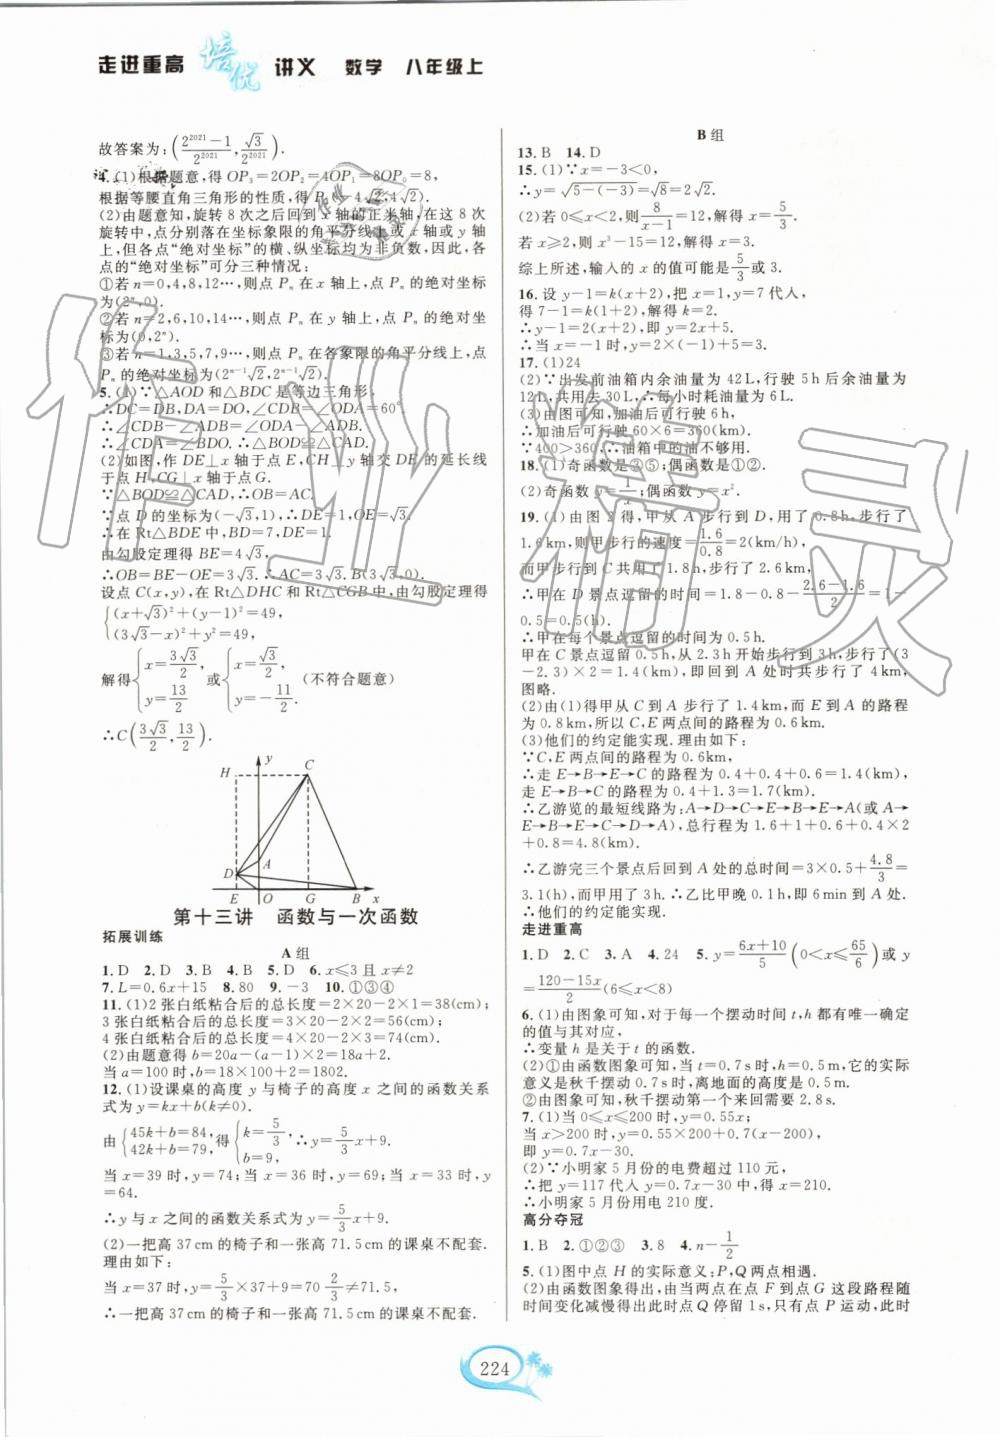 走进重高 培优 讲义 数学 八年级上
故答案为:(2^2021-1/2^2021, √3/2^2021).
4.(1)根据题意,得 OP3=2OP2=4OP1=8OP0=8,
根据等腰直角三角形的性质,得 P3(-4√2,4√2).
(2)由题意知,旋转 8 次之后回到 x 轴的正半轴,在这 8 次
旋转中,点分别落在坐标象限的角平分线上或 x 轴或 y 轴上,
但各点“绝对坐标”的横、纵坐标均为非负数,因此,各
点的“绝对坐标”可分三种情况:
①若 n=0,4,8,12…,则点 Pn在 x 轴上,点 Pn的绝对坐标
为(2^n,0).
②若 n=2,6,10,14…,则点 Pn在 y 轴上,点 Pn的绝对坐
标为(0,2^n).
③若 n=1,3,5,7,9…,则点 Pn在各象限的角平分线上,点
Pn的绝对坐标为(2^n-1√2,2^n-1√2).
5.(1)∵△AOD 和△BDC 是等边三角形,
∴DC=DB,DA=DO,∠CDB=∠ODA=60°.
∴∠CDB-∠ADB=∠ODA-∠ADB.
∴∠CDA=∠BDO.∴△BOD≌△CAD.
(2)如图,作 DE⊥x 轴于点 E,CH⊥y 轴交 DE 的延长线
于点 H,CG⊥x 轴于点 G.
∵△BOD≌△CAD,∴OB=CA.
∵点 D 的坐标为(-√3,1),∴DE=1,OE=√3.
∴在 Rt△BDE 中,BD=7,DE=1.
由勾股定理得 BE=4√3.
∴OB=BE-OE=3√3.∴AC=3√3.
设点 C(x,y),在 Rt△DHC 和 Rt△CGB 中,由勾股定理得
{(x+√3)²+(y-1)²=49,
(3√3-x)²+y²=49,
解得{x=3√3/2 y=13/2 或{x=√3/2 y=-11/2 (不符合题意)
∴C(3√3/2,13/2).
y
H C
D A
E O G B x
第十三讲 函数与一次函数
拓展训练
A 组
1. D 2. D 3. B 4. B 5. D 6. x≤3 且 x≠2
7. L=0.6x+15 8. 80 9. -3 10. ①③④
11.(1)2 张白纸粘合后的总长度=2×20-2×1=38(cm);
3 张白纸粘合后的总长度=3×20-2×2=56(cm);
4 张白纸粘合后的总长度=4×20-2×3=74(cm).
(2)由题意得 b=20a-(a-1)×2=18a+2.
当 a=100 时,b=18×100+2=1802.
12.(1)设课桌的高度 y 与椅子的高度 x 之间的函数关系
式为 y=kx+b(k≠0).
由{45k+b=84, 42k+b=79, 得{k=5/3, b=9, ∴y=5/3x+9.
当 x=39 时,y=74;当 x=36 时,y=69;当 x=33 时,y
=64.
∴y 与 x 之间的函数关系式为 y=5/3x+9.
(2)一把高 37cm 的椅子和一张高 71.5cm 的课桌不配套.
理由如下:
当 x=37 时,y=5/3×37+9=70 2/3≠71.5,
∴一把高 37cm 的椅子和一张高 71.5cm 的课桌不配套.
B 组
13. B 14. D
15.(1)∵x=-3<0,
∴y=√5-(-3)=√8=2√2.
(2)若 0≤x<2,则8/x-1=12,解得 x=5/3.
若 x≥2,则 x³-15=12,解得 x=3.
综上所述,输入的 x 的值可能是5/3或 3.
16. 设 y-1=k(x+2),把 x=1,y=7 代入,
得 7-1=k(1+2),解得 k=2.
∴y-1=2(x+2),即 y=2x+5.
∴当 x=-1 时,y=-2+5=3.
17.(1)24
(2)∵出发前油箱内余油量为 42L,行驶 5h 后余油量为
12L,共用去 30L,∴每小时耗油量为 6L.
(3)由图可知,加油后可行驶 6h,
∴加油后行驶 60×6=360(km).
∵400>360,∴油箱中的油不够用.
18.(1)奇函数是③⑤;偶函数是①②.
(2)奇函数 y=1/x;偶函数 y=x².
19.(1)由图 2 得,甲从 A 步行到 D,用了 0.8h,步行了
1.6km,则甲步行的速度=1.6/0.8=2(km/h),
而甲步行到 C 共用了 1.8h,步行了 2.6km,
∴甲在 D 景点逗留的时间=1.8-0.8-2.6-1.6/2=1-
0.5=0.5(h).
∴甲在每个景点逗留的时间为 0.5h.
甲在 C 景点逗留 0.5h,从 2.3h 开始步行到 3h,步行了(3
-2.3)×2=1.4(km),即回到 A 处时共步行了 4km,
图略.
(2)由(1)得甲从 C 到 A 步行了 1.4km,而 E 到 A 的路程
为 0.8km,所以 C,E 两点间的路程为 0.6km.
(3)他们的约定能实现.理由如下:
∵C,E 两点间的路程为 0.6km,
∴走 E→B→E→C 的路程为 0.4+0.4+0.6=1.4(km),
走 E→B→C 的路程为 0.4+1.3=1.7(km).
∴乙游览的最短线路为:A→D→C→E→B→E→A(或 A→
E→B→E→C→D→A),总行程为 1.6+1+0.6+0.4×2
+0.8=4.8(km).
∴乙游完三个景点后回到 A 处的总时间=3×0.5+4.8/3=
3.1(h),而甲用了 3h.∴乙比甲晚 0.1h,即 6min 到 A 处.
∴他们的约定能实现.
走进重高
1. D 2. C 3. A 4. 24 5. y=6x+10/5(0<x≤65/6)或
y=120-15x/2(6≤x<8)
6.(1)由图象可知,对于每一个摆动时间 t,h 都有唯一确定
的值与其对应,
∴变量 h 是关于 t 的函数.
(2)①由函数图象可知,当 t=0.7s 时,h=0.5m,它的实际
意义是秋千摆动 0.7s 时,离地面的高度为 0.5m.
②由图象可知,秋千摆动第一个来回需 2.8s.
7.(1)当 0≤x≤200 时,y=0.55x;
当 x>200 时,y=0.55×200+0.7(x-200),
即 y=0.7x-30.
(2)∵小明家 5 月份的电费超过 110 元,
∴把 y=117 代入 y=0.7x-30 中,得 x=210.
∴小明家 5 月份用电 210 度.
高分夺冠
1. B 2. ①②③ 3. 8 4. n-1/2
5.(1)图中点 H 的实际意义:P,Q 两点相遇.
(2)由函数图象得出,当两点在点 F 到点 G 这段路程随
时间变化减慢得出此时点 Q 停留 1s,只有点 P 运动,此时
224
作业精灵